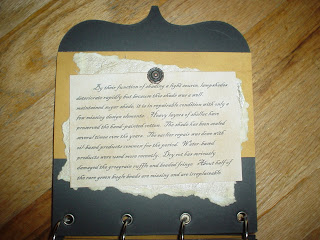 By their function of shading a light source, lampshades
deteriorate rapidly but because this shade was a well
maintained sugar shade, it is in repairable condition with only a
few missing design elements. Heavy layers of shellac have
preserved the hand painted cotton. The shade has been sealed
several times over the years. The earlier repair was done with
oil based products common for the period. Water based
products were used more recently. Dry rot has normally
damaged the grosgrain ruffle and beaded fringe. About half of
the rare green bugle beads are missing and are irreplaceable